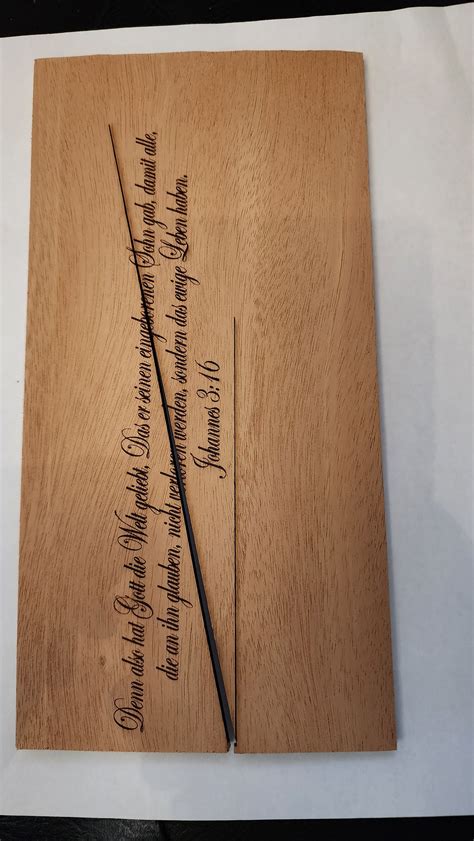 Denn also hat Gott die Welt geliebt, Das er seinen eingeborenen Sohn gab, damit alle,
die an ihn glauben, nicht verloren werden, sondern das ewige Leben haben.
Johannes 3:16